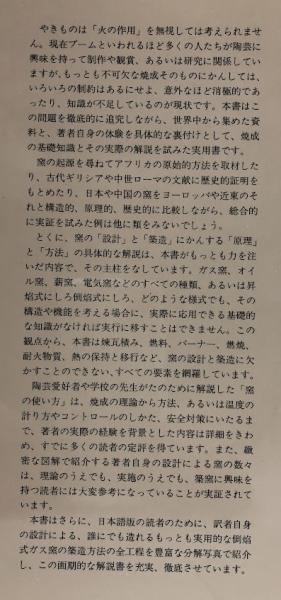 やきものは「火の作用」を無視しては考えられませ
ん。現在ブームといわれるほど多くの人たちが陶芸に
興味を持って制作や観賞、あるいは研究に関係してい
ますが、もっとも不可欠な焼成そのものにかんしては、
いろいろの制約はあるにせよ、意外なほど消極的であ
ったり、知識が不足しているのが現状です。本書はこ
の問題を徹底的に追究しながら、世界中から集めた資
料と、著者自身の体験を具体的な裏付けとして、焼成
の基礎知識とその実際の解説を試みた実用書です。
窯の起源を尋ねてアフリカの原始的方法を取材した
り、古代ギリシアや中世ローマの文献に歴史的証明を
もとめたり、日本や中国の窯をヨーロッパや近東のそ
れと構造的、原理的、歴史的に比較しながら、総合的
に実証を試みた例は他に類をみないでしょう。
とくに、窯の「設計」と「築造」にかんする「原理」
と「方法」の具体的な解説は、本書がもっとも力を注
いだ内容で、その主柱をなしています。ガス窯、オイ
ル窯、薪窯、電気窯などのすべての種類、あるいは昇
焔式にしろ倒焔式にしろ、どのような様式でも、その
構造や機能を考える場合に、実際に応用できる基礎的
な知識がなければ実行に移すことはできません。この
観点から、本書は煉瓦積み、燃料、バーナー、燃焼、
耐火物質、熱の保持と移行など、窯の設計と築造に欠
かすことのできない、すべての要素を網羅しています。
陶芸愛好者や学校の先生がたのために解説した「窯
の使い方」は、焼成の理論から方法、あるいは温度の
計り方やコントロールのしかた、安全対策にいたるま
で、著者の実際の経験を背景とした内容は詳細をきわ
め、すでに多くの読者の定評を得ています。また、緻
密な図解で紹介する著者自身の設計による窯の数々
は、理論のうえでも、実施のうえでも、築窯に興味を
持つ読者には大変参考になっていることが実証されて
います。
本書はさらに、日本語版の読者のために、訳者自身
の設計による、誰にでも造れるもっとも実用的な倒焔
式ガス窯の築造方法の全工程を豊富な分解写真で紹介
し、この画期的な解説書を充実、徹底させています。